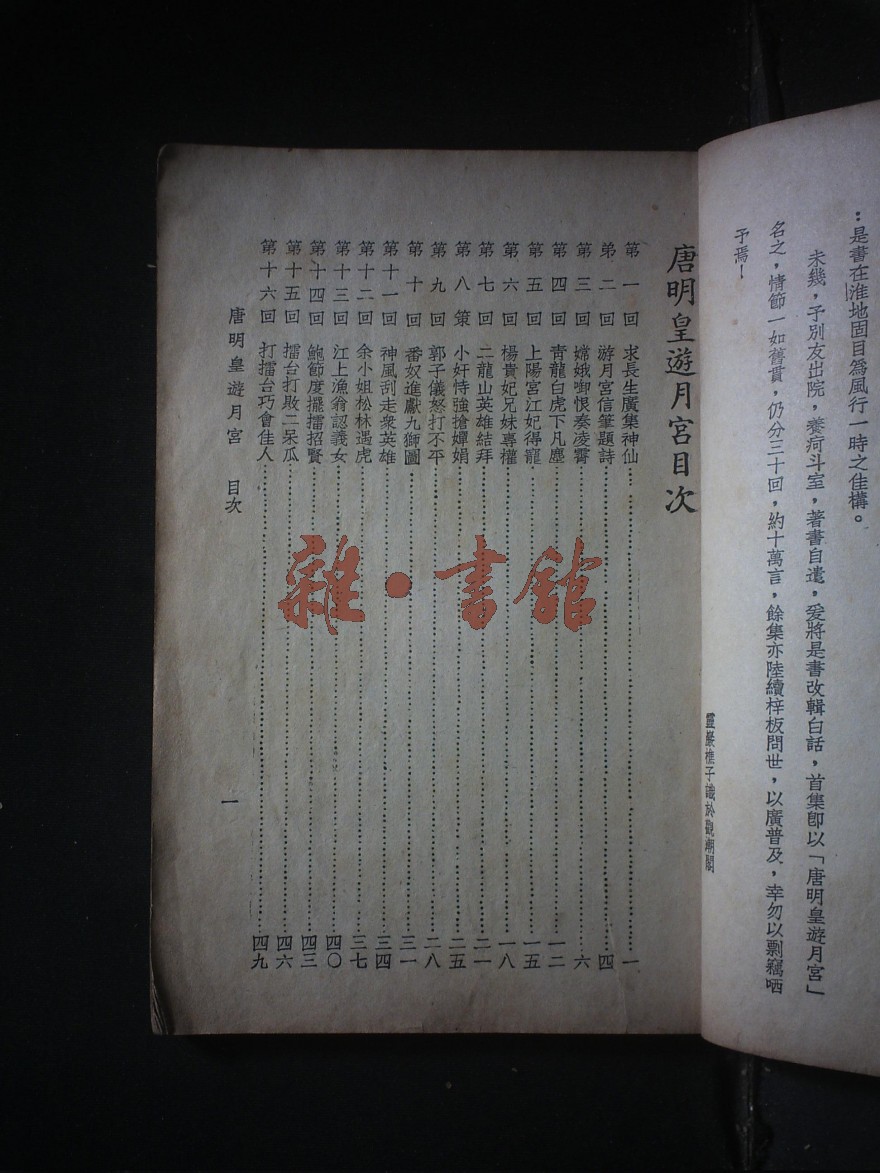 :是書在淮地固目爲風行一時之佳構。
未幾，予別友出院，養疴斗室，著書自遣，爰將是書改輯白話，首集卽以「唐明皇遊月宮」
名之，情節一如舊貫，仍分三十回，約十萬言，餘集亦陸續梓板問世，以廣普及，幸勿以剽竊哂
予焉！
靈巖樵子識於觀潮閣
唐明皇遊月宮目次
第一回　求長生廣集神仙………一
第二回　游月宮信筆題詩………四
第三回　嫦娥啣恨奏凌霄………六
第四回　靑龍白虎下凡塵………一二
第五回　上陽宮江妃得寵………一五
第六回　楊貴妃兄妹專權………一八
第七回　二龍山英雄結拜………二一
第八策　小奸恃強搶嬋娟………二五
第九回　郭子儀怒打不平………二八
第十回　番奴進獻九獅圖………三一
第十一回　神風刮走衆英雄………三四
第十二回　余小姐松林遇虎………三七
第十三回　江上漁翁認義女………四〇
第十四回　鮑節度擺擂招賢………四三
第十五回　擂台打敗二呆瓜………四六
第十六回　打擂台巧會佳人………四九
唐明皇遊月宮　目次
一
雜·書館